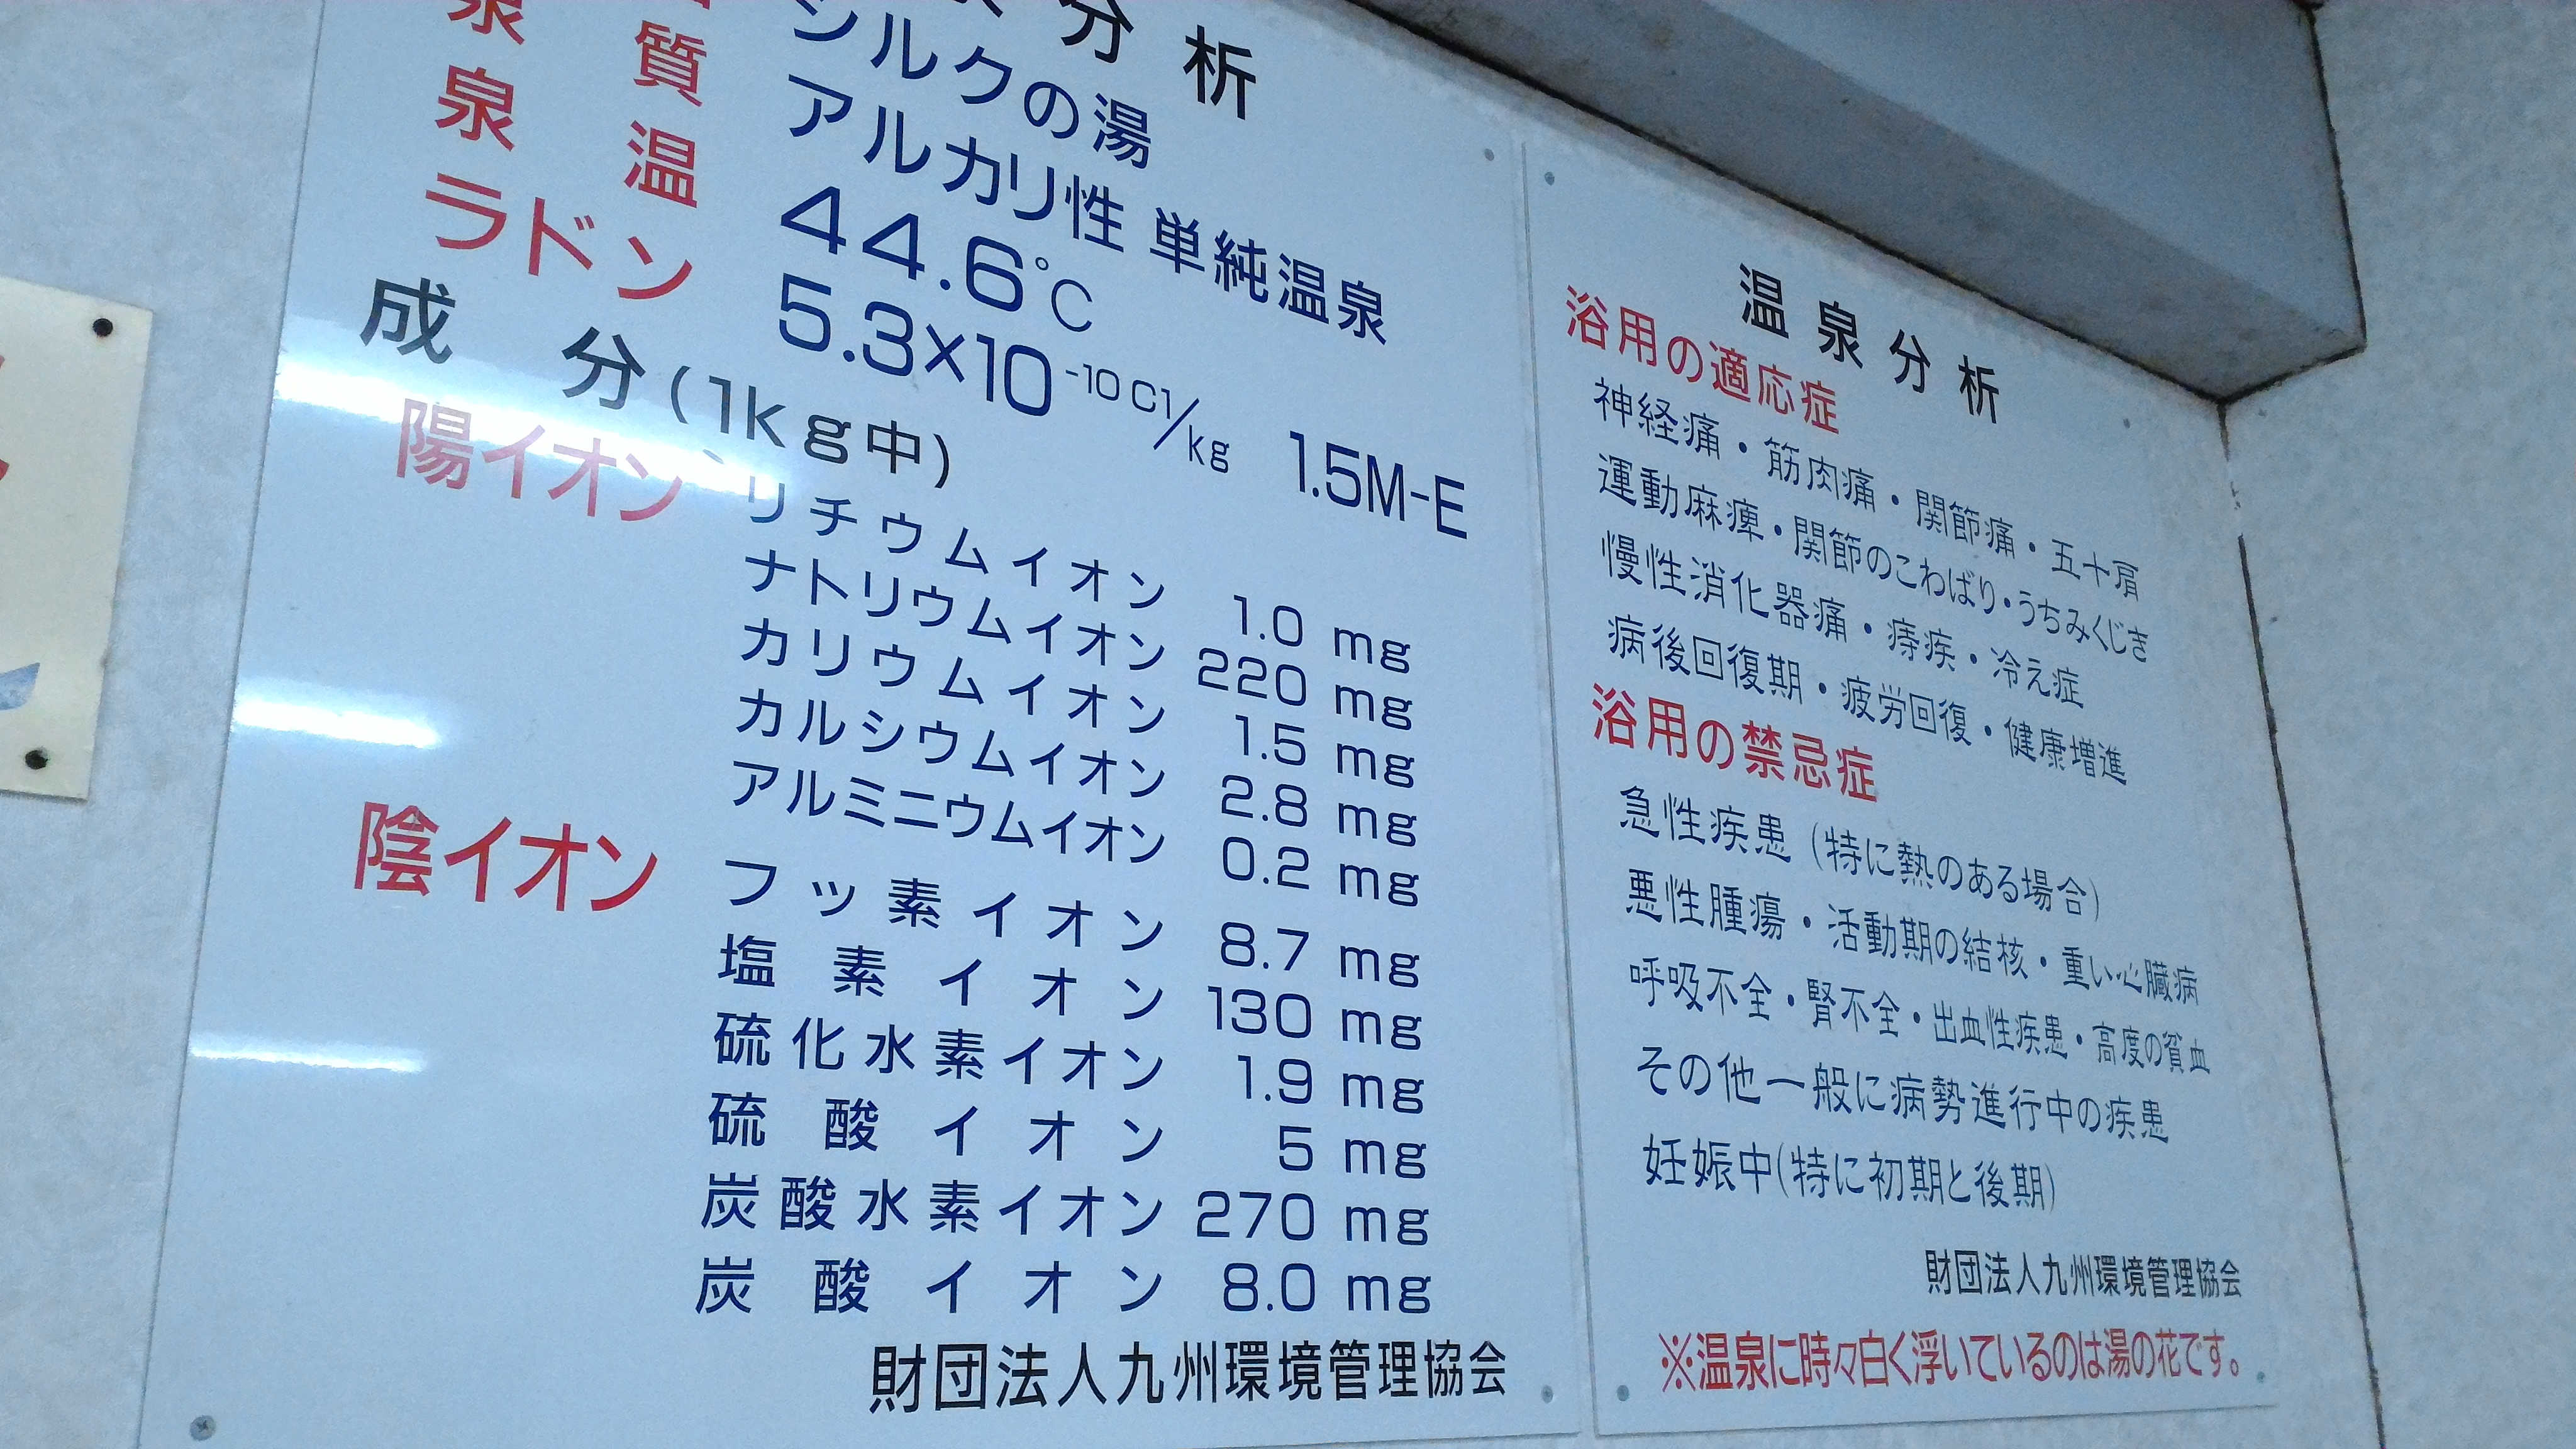 分析
シルクの湯
泉質 アルカリ性 単純温泉
泉温 44.6℃
ラドン 5.3×10⁻¹⁰ C1/kg 1.5M-E
成分(1kg中)
陽イオン リチウムイオン 1.0 mg
ナトリウムイオン 220 mg
カリウムイオン 1.5 mg
カルシウムイオン 2.8 mg
アルミニウムイオン 0.2 mg
陰イオン フッ素イオン 8.7 mg
塩素イオン 130 mg
硫化水素イオン 1.9 mg
硫酸イオン 5 mg
炭酸水素イオン 270 mg
炭酸イオン 8.0 mg
財団法人九州環境管理協会
温泉分析
浴用の適応症
神経痛・筋肉痛・関節痛・五十肩
運動麻痺・関節のこわばり・うちみくじき
慢性消化器痛・痔疾・冷え症
病後回復期・疲労回復・健康増進
浴用の禁忌症
急性疾患(特に熱のある場合)
悪性腫瘍・活動期の結核・重い心臓病
呼吸不全・腎不全・出血性疾患・高度の貧血
その他一般に病勢進行中の疾患
妊娠中(特に初期と後期)
財団法人九州環境管理協会
※温泉に時々白く浮いているのは湯の花です。